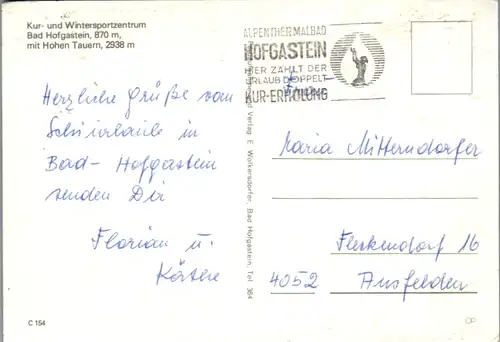 Kur- und Wintersportzentrum
Bad Hofgastein, 870 m,
mit Hohen Tauern, 2938 m
ALPENTHERMALBAD
HOFGASTEIN
HIER ZÄHLT DER
URLAUB DOPPELT
KUR-ERHOLUNG
Herzliche Grüße vom
Schiurlaub in
Bad-Hofgastein
senden Dir
Florian u.
Käthe
Verlag E. Wolkersdorfer, Bad Hofgastein, Tel. 364
Maria Mitterndorfer
Fleckendorf 16
4052 Ansfelden
C 154